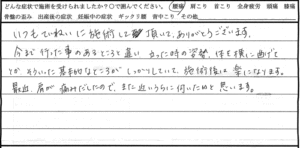 どんな症状で施術を受けられましたか?○で囲んでください。 腰痛 肩こり 首こり 全身疲労 頭痛 膝痛
骨盤の歪み 出産後の症状 妊娠中の症状 ギックリ腰 背中こり その他
いつもていねいに施術して頂いて、ありがとうございます。
今まで行った事のあるところと違い 立った時の姿勢、体を横に曲げて
とか そういった基本的なところが しっかりしていて、施術後は 楽になります。
最近、肩が痛みだしたので、また近いうちに伺いたいと思います。